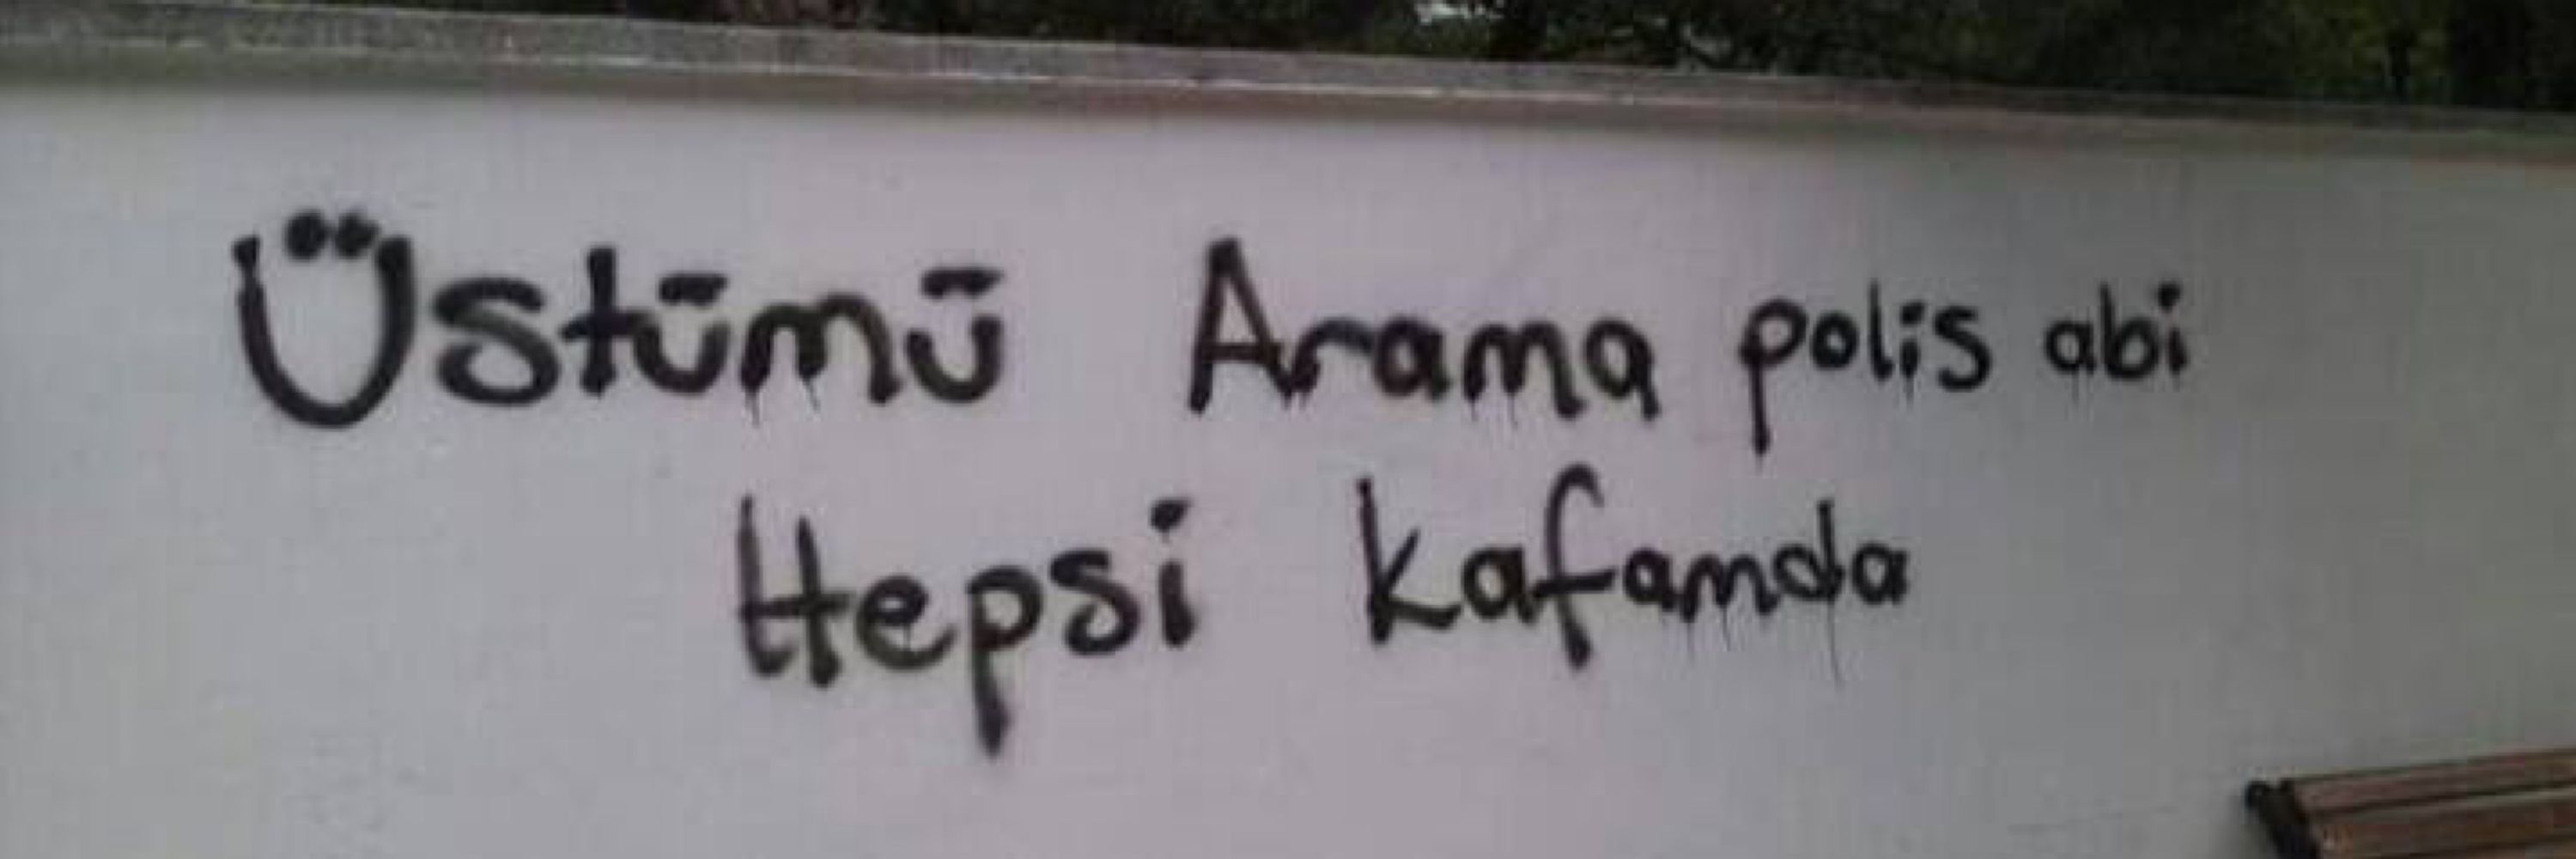 Üstümü Arama polis abi
Hepsi kafamda